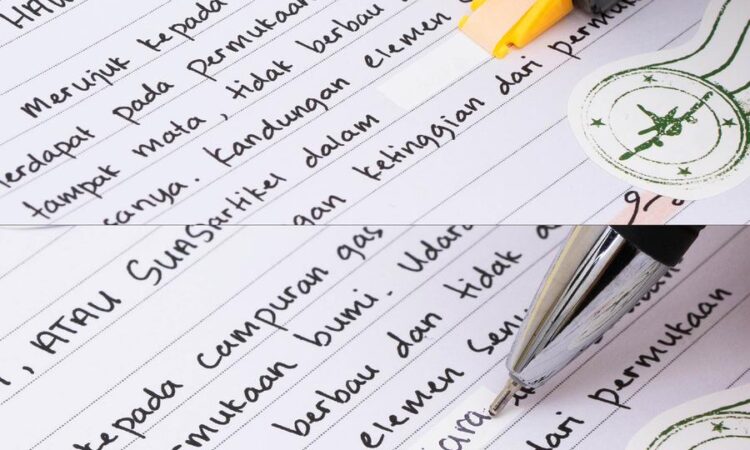 HAW
Merujuk kepada
terdapat pada permukaan
tampak mata, tidak berbau
sanya. Kandungan elemen s
artikel dalam
gan ketinggian dari permuk
, ATAU SUAS
kepada campuran gas
rmukaan bumi. Udara
berbau dan tidak
elemen seny
ara
dari permukaan